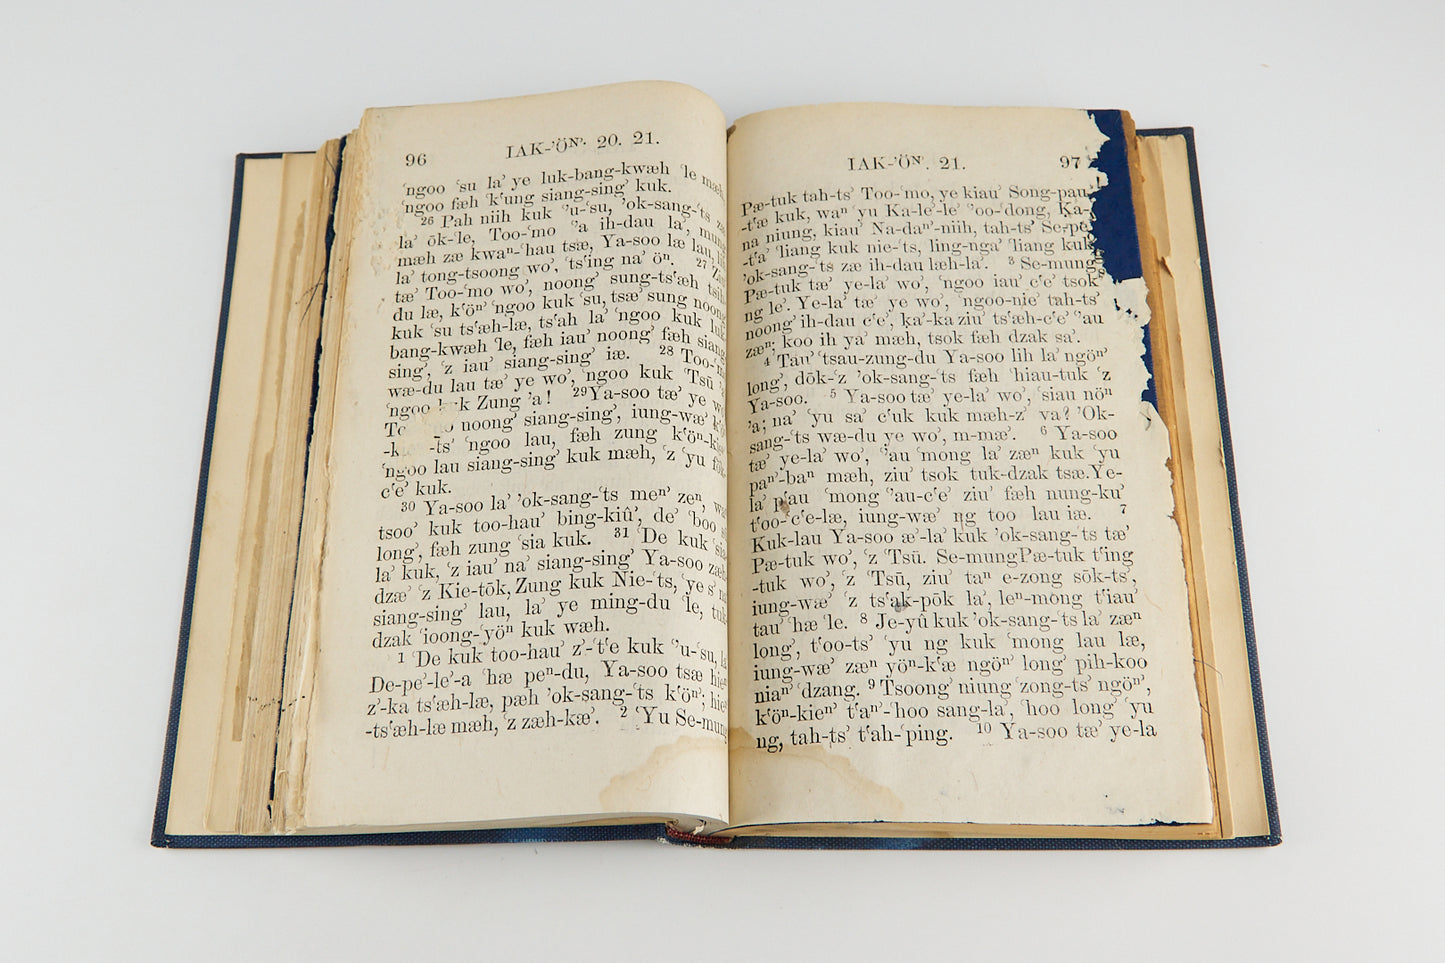 96
IAK-’ÖN’. 20. 21.
‘ngoo ‘su la’ ye luk-bang-kwæh ‘le
‘ngoo fæh ‘k‘ung siang-sing’ kuk.
26 Pah niih kuk ‘’u-‘su, ’ok-sang-‘ts
la’ ōk-‘le, Too-‘mo ‘’a ih-dau la’,
mæh zæ kwaⁿ-‘hau tsæ, Ya-soo læ lau,
la’ tong-tsoong wo’, ‘ts‘ing na’ öⁿ. 27
tæ’ Too-‘mo wo’, noong’ sung-ts‘æh
du læ, k‘öⁿ’ ‘ngoo kuk ‘su, tsæ’ sung noong
kuk ‘su ts‘æh-læ, ts‘ah la’ ‘ngoo kuk
bang-kwæh ‘le, fæh iau’ noong’ fæh siang
sing’, ‘z iau’ siang-sing’ iæ. 28 Too-
wæ-du lau tæ’ ye wo’, ‘ngoo kuk ‘Tsū ’a
‘ngoo kuk Zung ’a! 29 Ya-soo tæ’ ye
noong’ siang-sing’, iung-wæ’
-ts’ ‘ngoo lau, fæh zung k‘öⁿ-
‘ngoo lau siang-sing’ kuk mæh, ‘z ‘yu
c‘e’ kuk.
30 Ya-soo la’ ’ok-sang-‘ts meⁿ’ zeⁿ,
tsoo’ kuk too-hau’ bing-kiû’, de’ ‘boo
long’, fæh zung ‘sia kuk. 31 ‘De kuk
la’ kuk, ‘z iau’ na’ siang-sing’ Ya-soo
dzæ’ ‘z Kie-tōk, Zung kuk Nie-‘ts, ‘ye
siang-sing’ lau, la’ ye ming-du ‘le,
dzak ‘ioong-‘yöⁿ kuk wæh.
1 ‘De kuk too-hau’ z’-‘t‘e kuk ‘’u-‘su,
De-pe’-le’-a ‘hæ peⁿ-du, Ya-soo tsæ
z’-ka ts‘æh-læ, pæh ’ok-sang-‘ts k‘öⁿ’;
-ts‘æh-læ mæh, ‘z zæh-kæ’. 2 ‘Yu Se-mung
IAK-’ÖN’. 21.
97
Pæ-tuk tah-ts’ Too-‘mo, ye kiau’ Song-pau’
-t‘æ kuk, waⁿ ‘yu Ka-le’-le’ ‘’oo-‘dong, Ka-
na niung, kiau’ Na-daⁿ’-niih, tah-ts’ Se-pe’
-t‘a’ ‘liang kuk nie-‘ts, ling-nga’ ‘liang kuk
’ok-sang-‘ts zæ ih-dau læh-la’. 3 Se-mung
Pæ-tuk tæ’ ye-la’ wo’, ‘ngoo iau’ c‘e’ tsok
ng le’. Ye-la’ tæ’ ye wo’, ‘ngoo-nie’ tah-ts’
noong’ ih-dau c‘e’, ka’-ka ziu’ ts‘æh-c‘e’ ‘’au
zæⁿ; koo ih ya’ mæh, tsok fæh dzak sa’.
4 Tau’ ‘tsau-zung-du Ya-soo lih la’ ngöⁿ’
long’, dōk-‘z ’ok-sang-‘ts fæh ‘hiau-tuk ‘z
Ya-soo. 5 Ya-soo tæ’ ye-la’ wo’, ‘siau nöⁿ
’a; na’ ‘yu sa’ c‘uk kuk mæh-z’ va? ’Ok-
sang-‘ts wæ-du ye wo’, m-mæ’. 6 Ya-soo
tæ’ ye-la’ wo’, ‘’au ‘mong la’ zæⁿ kuk ‘yu
paⁿ’-baⁿ mæh, ziu’ tsok tuk-dzak tsæ. Ye-
la’ p‘au ‘mong ‘’au-c‘e’ ziu’ fæh nung-ku’
t‘oo-‘c‘e-læ, iung-wæ’ ng too lau iæ. 7
Kuk-lau Ya-soo æ’-la’ kuk ’ok-sang-‘ts tæ’
Pæ-tuk wo’, ‘z ‘Tsū. Se-mung Pæ-tuk t‘ing
-tuk wo’, ‘z ‘Tsū, ziu’ taⁿ e-zong sōk-ts’,
iung-wæ’ ‘z ts‘ak-pōk la’, leⁿ-mong t‘iau’
tau’ ‘hæ ‘le. 8 Je-yû kuk ’ok-sang-‘ts la’ zæⁿ
long’, t‘oo-ts’ ‘yu ng kuk ‘mong lau læ,
iung-wæ’ zæⁿ yöⁿ-k‘æ ngöⁿ’ long’ pih-koo
niaⁿ’ ‘dzang. 9 Tsoong’ niung ‘zong-ts’ ngöⁿ’,
k‘öⁿ-kien’ t‘aⁿ’-‘hoo sang-la’, ‘hoo long’ ‘yu
ng, tah-ts’ t‘ah-‘ping. 10 Ya-soo tæ’ ye-la